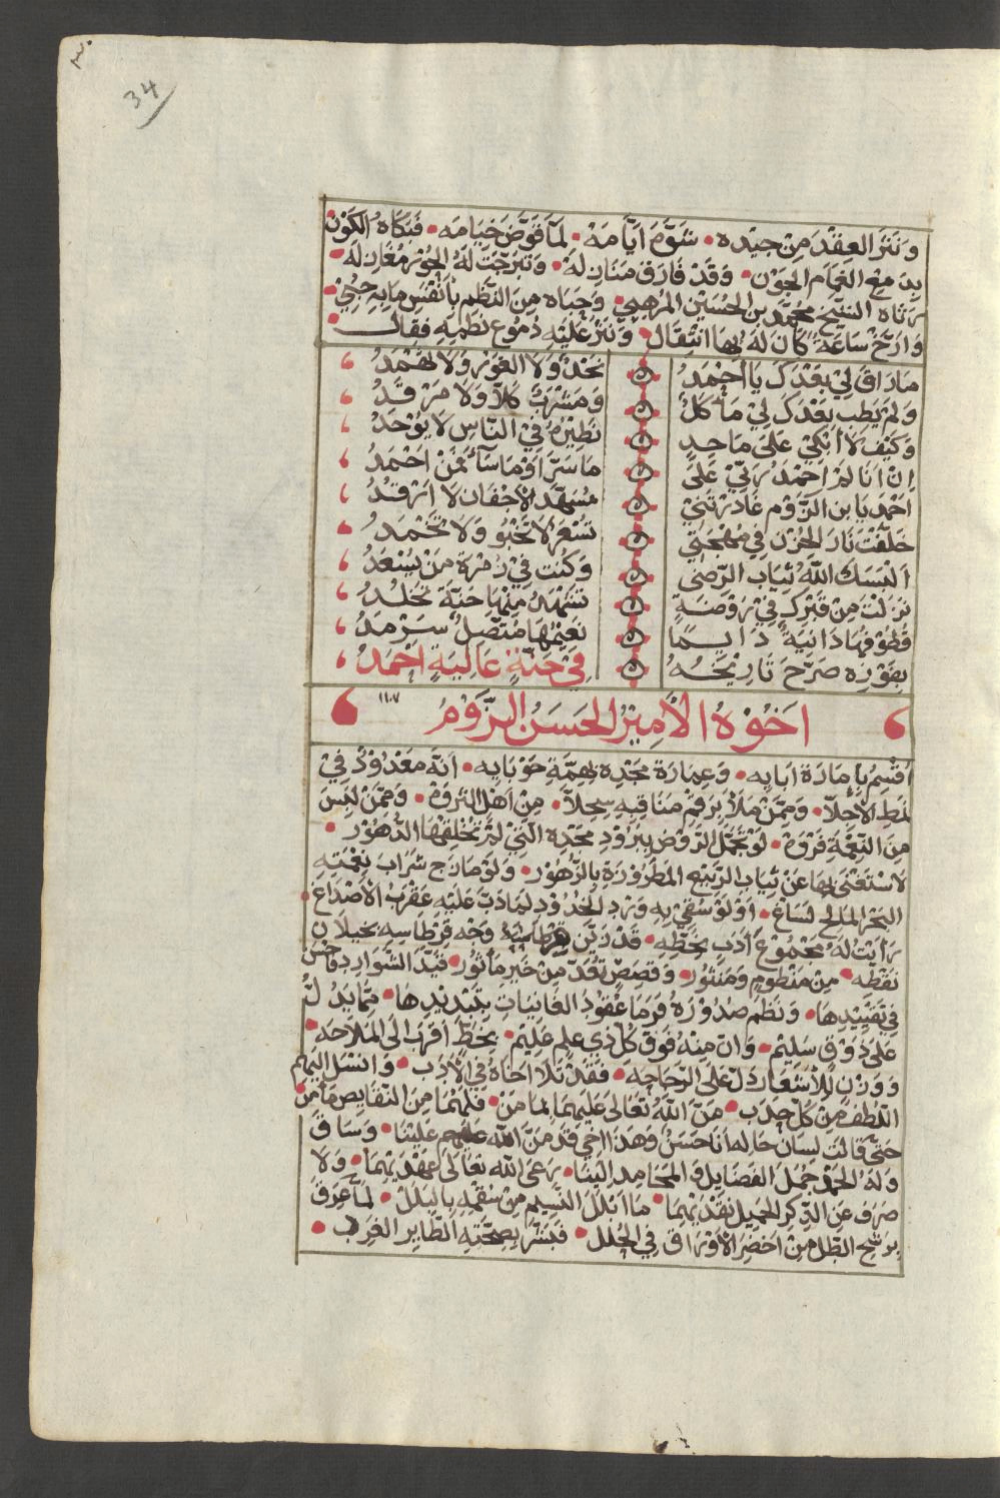 34
ونثر العقد من جيده • شوم ايامه • لما قوض خيامه • فبكاه الكون
بدمع الغمام الجون • وقد فارق منازله • وتبرجت له الحور مغازله •
رثاه الشيخ محمد بن الحسين المرهبي • وحباه من النظم بانفس ما به حبي •
وارخ ساعة كان له بها انتقال • ونثر عليه دموع نظمه فقال •
ما راق لي بعدك يا احمد نجد ولا الغور ولا ثهمد
ولم يطب بعدك لي مأكل ومشرب كلا ولا مرقد
وكيف لا ابكي على ماجد نظيره في الناس لا يوجد
ان انا لم احمد ربي على ما سرا او ما ساء فمن احمد
احمد يا بن الروم غادرتني مسهد الاجفان لا ارقد
خلفت نار الحزن في مهجتي تسعر لا تخبو ولا تخمد
البسك الله ثياب الرضى وكنت في زمرة من يسعد
نزلت من قبرك في روضة تشهد منها جنة تخلد
قطوفها دانية دايما نعيمها متصل سرمد
بفوزه صرح تاريخه في جنة عالية احمد
١١٠٧
اخوه الامير الحسن الروم
اقسم بامارة ابايه • وعمارة مجده بهمة حوبايه • انه معدود في
نمط الاجلا • وممن ملا برقم مناقبه سجلا • من اهل الثروة • وممن لبس
من النعمة فروة • لو تجمل الروض ببرود مجده التي لم تخلقها الدهور •
لاستغنى بها عن ثياب الربيع المطروزة بالزهور • ولو مازج شراب نعمته
البحر المالح لساغ • او لو سقي به ورد الخدود لما دب عليه عقرب الاصداغ •
رايت له مجموع ادب بخطه • قد زين وجه قرطاسه بخيلان
نقطه • من منظوم ومنثور • وقصص تعد من خير ماثور • قيد الشوارد
في تقييدها • ونظم صدوره فرما عقود الغانيات بتبديدها • مما يدل
على ذوق سليم • وان منه فوق كل ذي علم عليم • بخط اقرب الى الملاحه •
ووزن للاشعار دل على الرجاحه • فقد تلا اخاه في الادب • وانسل اليهم
اللطف من كل حدب • من الله تعالى عليهما لما من • فلهما من النقايص مامن
حتى قالت لسان حاله انا حسن وهذا اخي قد من الله علينا • وساق
وله الحمد جمل الفضايل والمحامد الينا • رعى الله تعالى عهديهما • ولا
صرف عن الذكر الجميل نقديهما • ما ابل النسيم من سقمه بالبلل • لما عرق
برشح الطل من اخضر الاوراق في الحلل • فبشر بصحته الطاير الغرب •